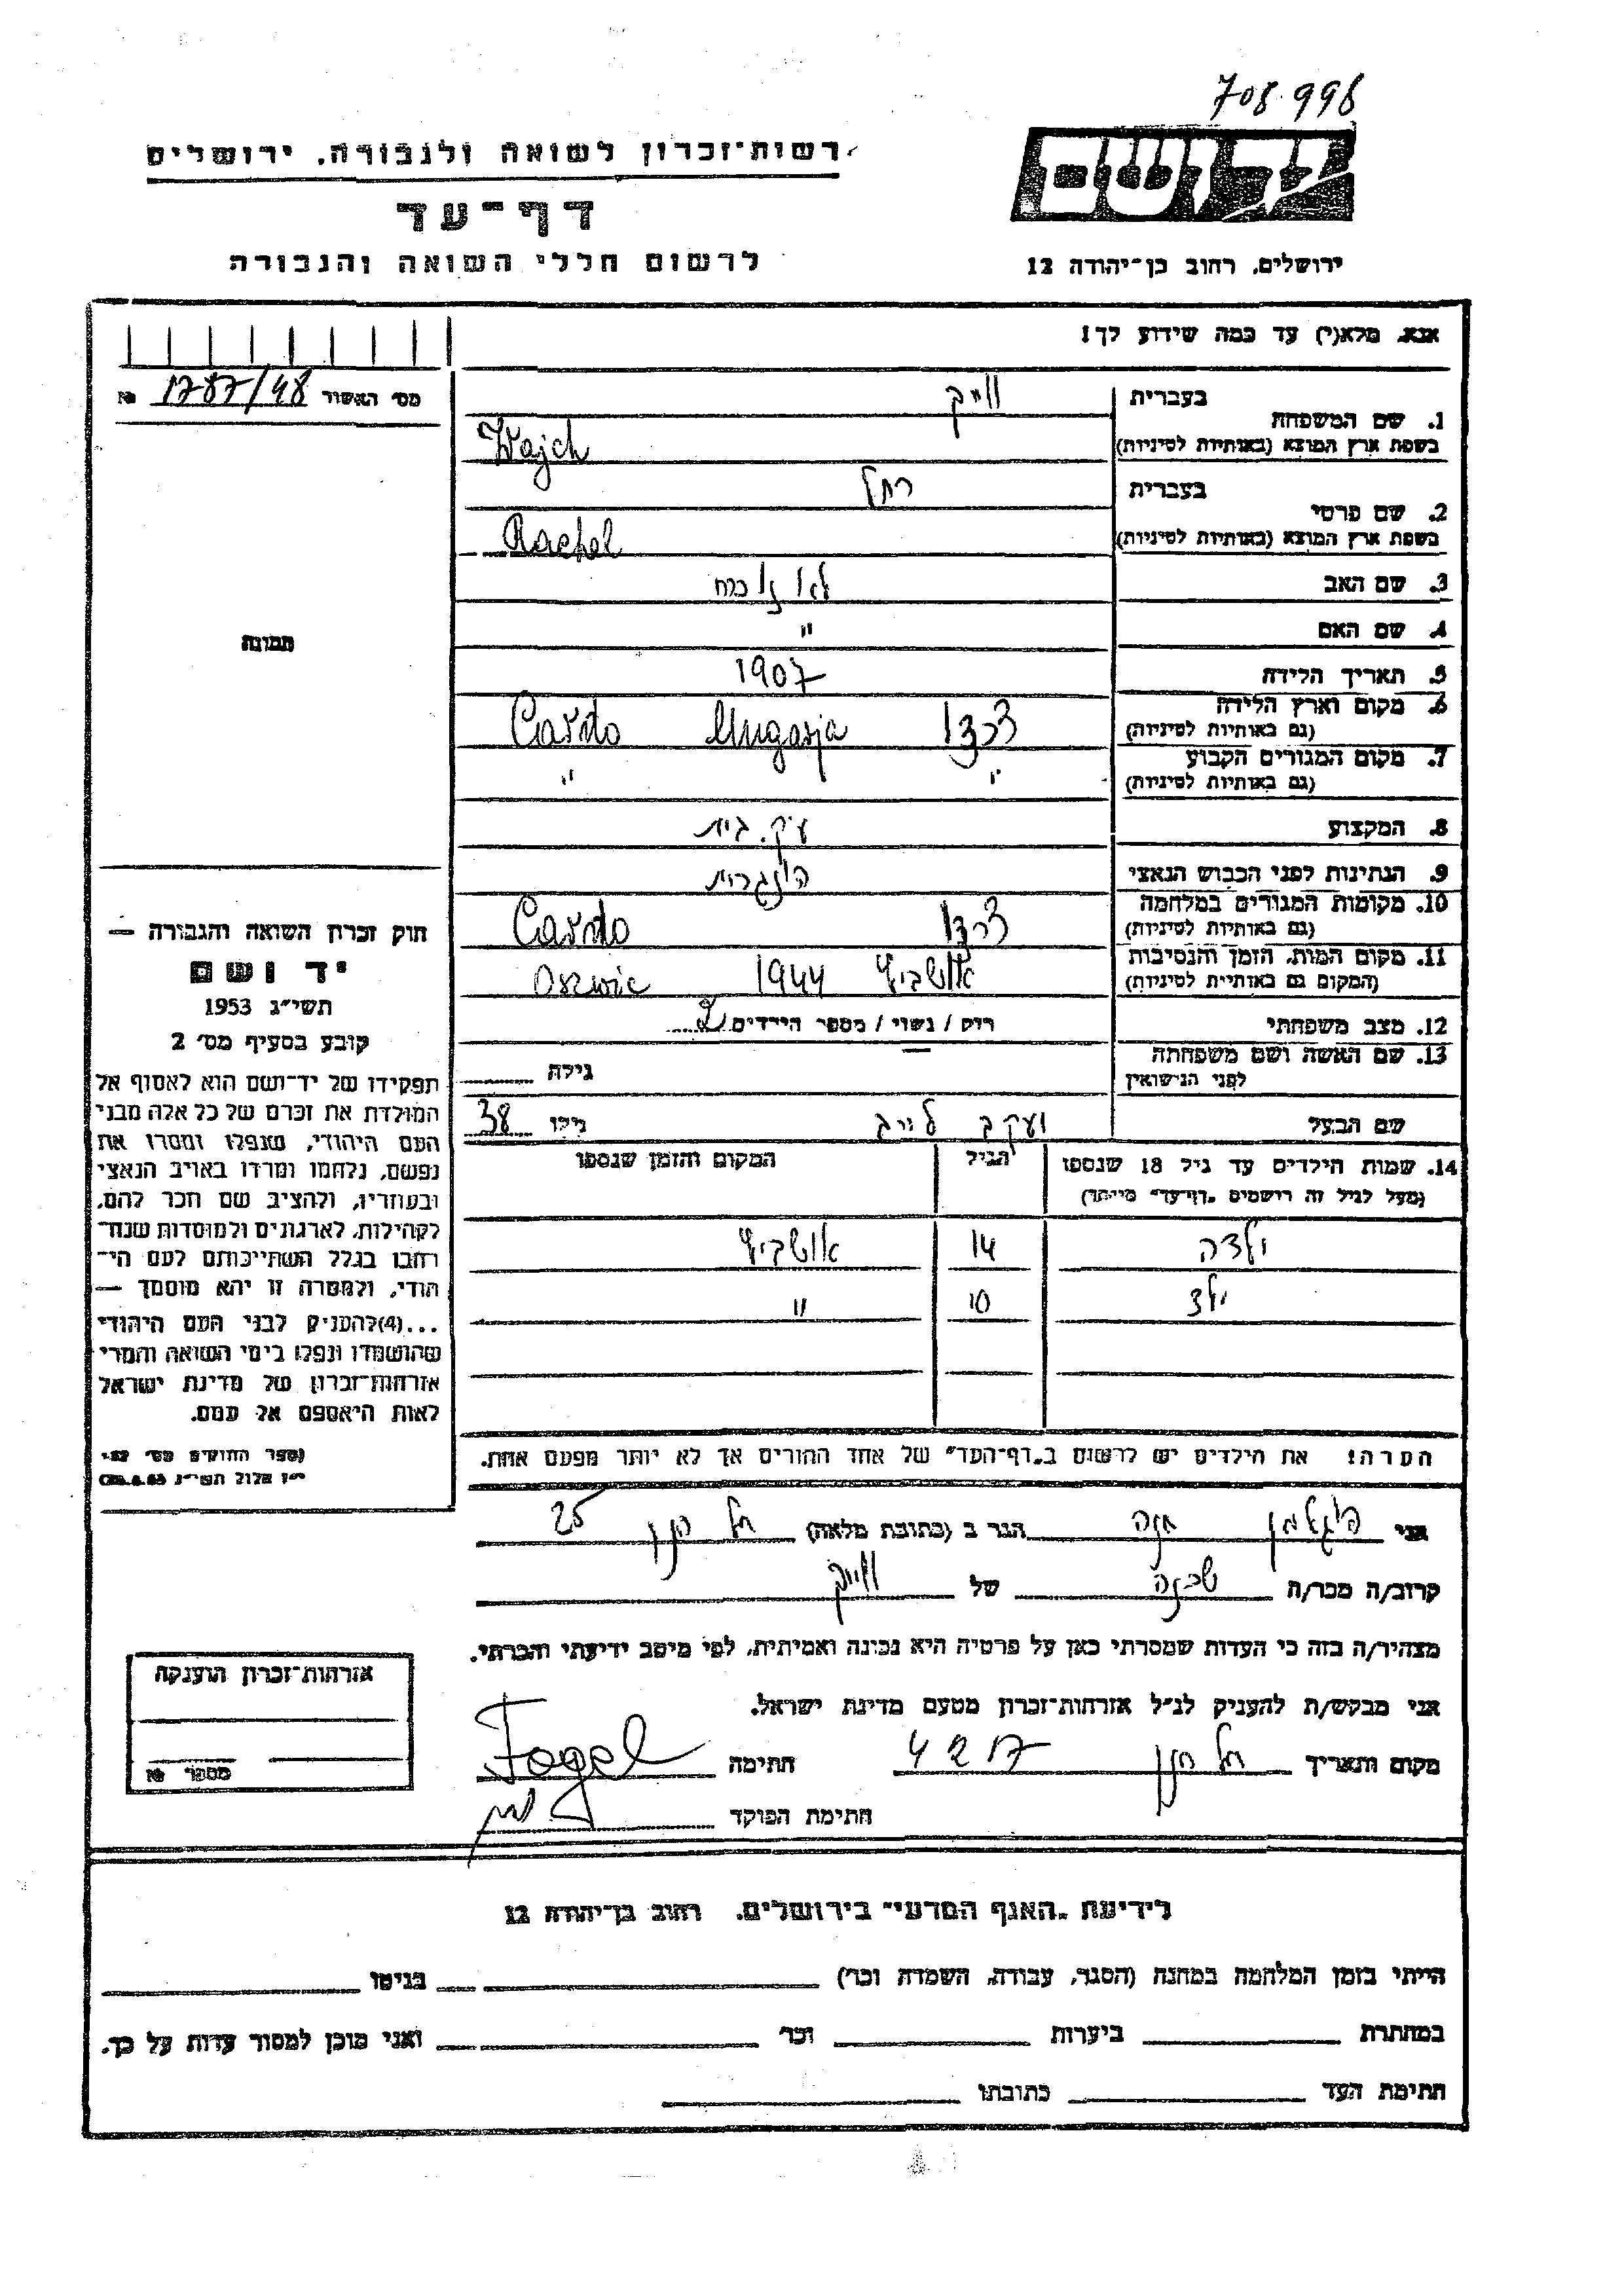 708998
רשות־זכרון לשואה ולגבורה, ירושלים
יד ושם
דף־עד
לרשום חללי השואה והגבורה
ירושלים, רחוב בן־יהודה 12
אנא, מלא(י) עד כמה שידוע לך!
מס׳ האשור 1787/48 №
1. שם המשפחה
בעברית וייך
בשפת ארץ המוצא (באותיות לטיניות) Wajch
2. שם פרטי
בעברית רחל
בשפת ארץ המוצא (באותיות לטיניות) Rachel
3. שם האב לא נזכרת
4. שם האם "
5. תאריך הלידה 1907
6. מקום וארץ הלידה
(גם באותיות לטיניות) Cardo Ungarja
7. מקום המגורים הקבוע
(גם באותיות לטיניות) " "
8. המקצוע עק. בית
9. הנתינות לפני הכבוש הנאצי הונגרית
10. מקומות המגורים במלחמה
(גם באותיות לטיניות) Cardo
11. מקום המות, הזמן והנסיבות
(המקום גם באותיות לטיניות) אושביץ 1944
12. מצב משפחתי רוק / נשוי / מספר הילדים 2
13. שם האשה ושם משפחתה
לפני הנישואין גילה
שם הבעל יעקב גילו 38
14. שמות הילדים עד גיל 18 שנספו הגיל המקום והזמן שנספו
(מעל לגיל זה רושמים "דף־עד" מיוחד)
ילדה 14 אושביץ
ילד 10 "
הערה! את הילדים יש לרשום ב"דף־העד" של אחד ההורים אך לא יותר מפעם אחת.
תמונה
חוק זכרון השואה והגבורה —
יד ושם
תשי״ג 1953
קובע בסעיף מס׳ 2
תפקידו של יד־ושם הוא לאסוף אל
המולדת את זכרם של כל אלה מבני
העם היהודי, שנפלו ומסרו את
נפשם, נלחמו ומרדו באויב הנאצי
ובעוזריו, ולהציב שם וזכר להם,
לקהילות, לארגונים ולמוסדות שנח־
רבו בגלל השתייכותם לעם הי־
הודי, ולמטרה זו יהא מוסמך —
...(4)להעניק לבני העם היהודי
שהושמדו ונפלו בימי השואה והמרי
אזרחות־זכרון של מדינת ישראל
לאות היאספם אל עמם.
(ספר החוקים מס׳ 132
י״ז אלול תשי״ג 28.8.53)
אני חנה הגר ב (כתובת מלאה) תל חנן 25
קרוב/ה מכר/ה שכנה של וייך
מצהיר/ה בזה כי העדות שמסרתי כאן על פרטיה היא נכונה ואמיתית, לפי מיטב ידיעתי והכרתי.
אני מבקש/ת להעניק לנ״ל אזרחות־זכרון מטעם מדינת ישראל.
מקום ותאריך תל חנן חתימה Fogel
חתימת הפוקד
אזרחות־זכרון הוענקה
מספר №
לידיעת "האגף המדעי" בירושלים. רחוב בן־יהודה 12
הייתי בזמן המלחמה במחנה (הסגר, עבודה, השמדה וכו׳) בגיטו
במחתרת ביערות וכו׳ ואני מוכן למסור עדות על כך.
חתימת העד כתובתו